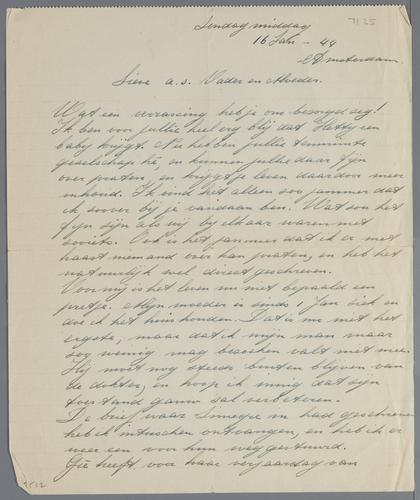 Zondag middag
7125
16 Jan - 44
Amsterdam.
Lieve a.s. Vader en Moeder.
Wat een verrassing heb je ons bezorgd zeg!
Ik ben voor jullie heel erg blij dat Hetty een
baby krijgt. Nu hebben jullie tenminste
gezelschap hè, en kunnen jullie daar fijn
over praten, en krijgt je leven daardoor meer
inhoud. Ik vind het alleen zoo jammer dat
ik zoover bij je vandaan ben. Wat zou het
fijn zijn als wij bij elkaar waren met
zooiets. Ook is het jammer dat ik er met
haast niemand over kan praten, en heb het
natuurlijk wel direct geschreven.
Voor mij is het leven nu niet bepaald een
pretje. Mijn moeder is sinds 1 Jan ziek en
doe ik het huishouden. Dat is nu niet het
ergste, maar dat ik mijn man maar
zoo weinig mag bezoeken valt niet mee.
Hij moet nog steeds binnen blijven van
de dokter, en hoop ik innig dat zijn
toestand gauw zal verbeteren.
De brief waar in had geschreven
heb ik intusschen ontvangen, en heb ik er
weer een voor hem weggestuurd.
heeft voor haar verjaardag van